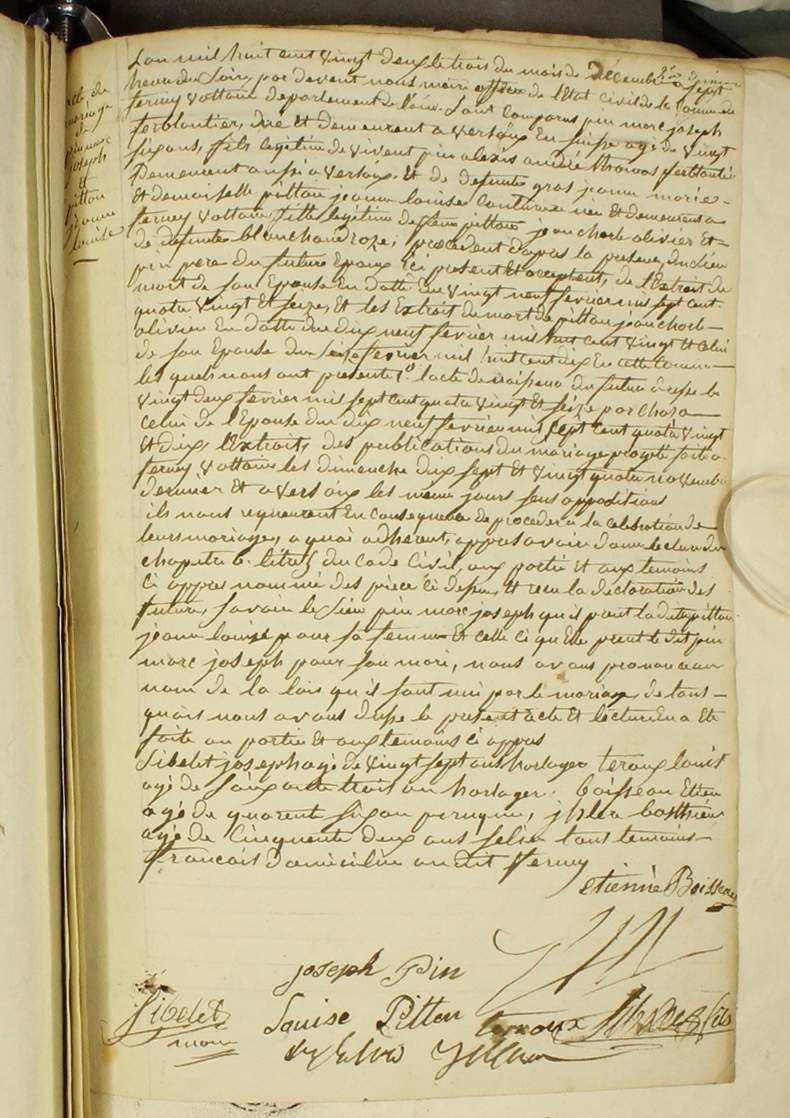 acte de
mariage
de
pin marc
joseph
et
pitton
jeanne
louise
L'an mil huit cent vingt deux le trois du mois de décembre à sept
heure du soir, par devant nous maire officier de l'Etat civil de la commune de
ferney voltaire departement de l'ain. Sont comparus pin marc joseph
ferblantier, né et demeurant a versoix En suisse agé de vingt
six ans, fils legitime de vivent pin alexis andré thomas ferblantier
Demeurant aussi a versoix. Et de defunte gros jeanne marie
et demoiselle pitton jeanne louise couturiere née et demeurant a
ferney voltaire, fille legitime de feu pitton jean charle olivier Et
de defunte blanchand roze, procedent dapres la presence du sieur
pin pere du futur Epoux ici present et acceptent, de l'Extrait de
mort de son Epouse En datte du vingt neuf fevrier mil sept cent
quatre vingt Et seize, Et les Extrait de mort de pitton jean charle
olivier En datte du dix neuf fevrier mil huit cent vingt et celui
de son Epouse du seize fevrier mil huit cent dix En cette commune
les quels nous ont presenté 1° l'acte de naissance du futur
vingt deux fevrier mil sept cent quatre vingt Et seize par
celui de l'Epouse du dix neuf fevrier mil sept cent quatre vingt
Et dix, l'Extraits des publications du mariage projeté faite a
ferney voltaire les dimanche dix sept Et vingt quatre novembre
dernier Et a versoix les meme jours sens opposition
ils nous requerent En consequence de proceder a la celebration de
leurs mariage, a quoi adherent, appres avoir donné lecture du
chapitre 6. titre 5 du Code Civil, aux partie et aux temoins
ci appres nommé des piece ci desus, et recu la declaration des
futurs, savoir le sieur pin marc joseph qu'il prent la dite pitton
jeanne louise pour sa femme Et celle ci qu'elle prent le dit pin
marc joseph pour son mari, nous avons prononcé au
nom de la lois qu'il sont uni par le mariage, de tous
quois nous avons dressé le present acte Et lecture En a Eté
faite au partie et aux temoins ci appres
Sibelet joseph agé de vingt sept ans horloger teroux louis
agé de soixante trois an horloger. boisseau Etienne
agé de quarente six an
agé de Cinquente deux ans sellier tous temoins
francois domicilier au dit ferney
etienne Boisseau
joseph Pin
Sibelet
Louise Pitton
teroux
fils